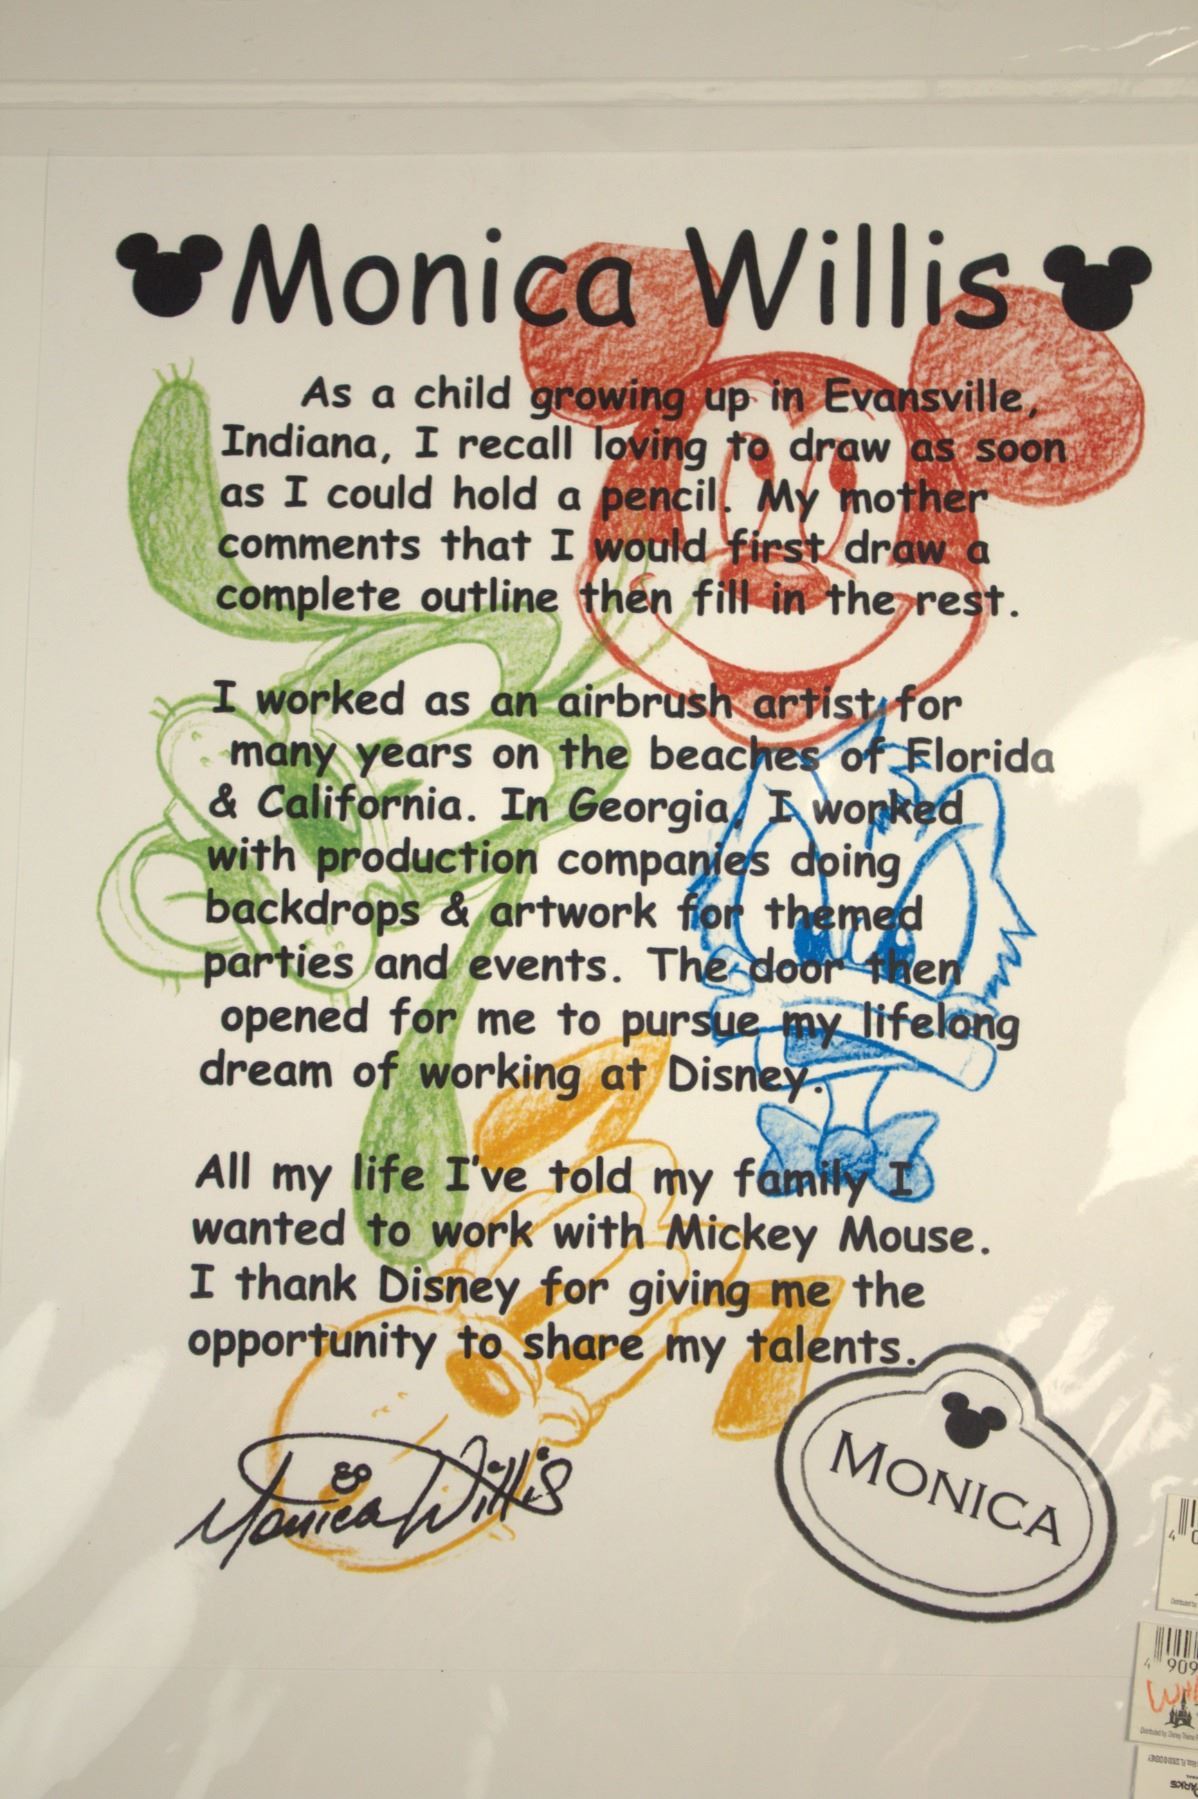 Monica Willis
As a child growing up in Evansville,
Indiana, I recall loving to draw as soon
as I could hold a pencil. My mother
comments that I would first draw a
complete outline then fill in the rest.
I worked as an airbrush artist for
many years on the beaches of Florida
& California. In Georgia, I worked
with production companies doing
backdrops & artwork for themed
parties and events. The door then
opened for me to pursue my lifelong
dream of working at Disney.
All my life I've told my family I
wanted to work with Mickey Mouse.
I thank Disney for giving me the
opportunity to share my talents.
Monica Willis
MONICA
4 909